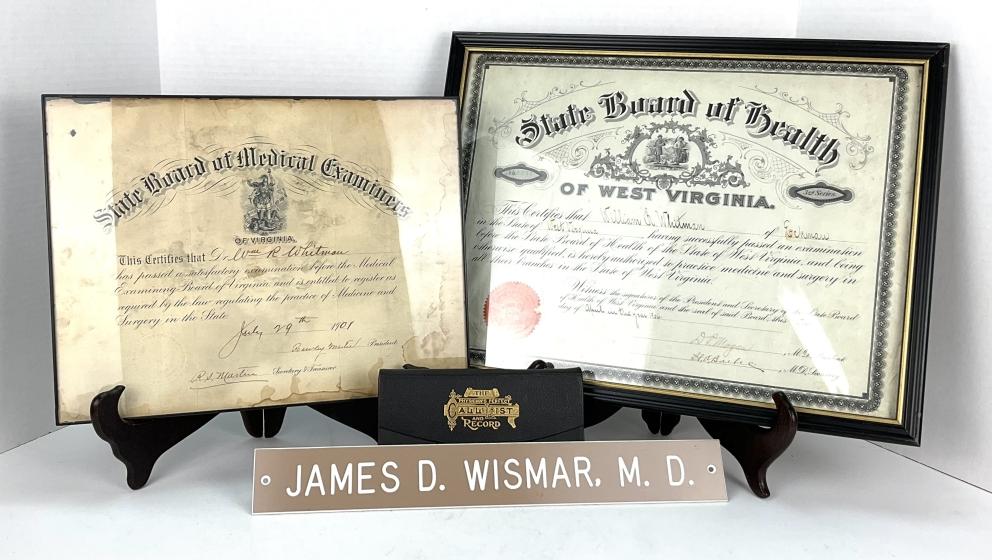 State Board of Medical Examiners
OF VIRGINIA.
This Certifies that Dr Wm R Whitman
has passed a satisfactory examination before the Medical
Examining Board of Virginia, and is entitled to register as
required by the law regulating the practice of Medicine and
Surgery in the State.
July 29th 1901
President
R. S. Martin Secretary & Treasurer
State Board of Health
OF WEST VIRGINIA.
3rd Series.
This Certifies that William A Whitman of
in the State of West Virginia having successfully passed an examination
before the State Board of Health of the State of West Virginia, and being
otherwise qualified, is hereby authorized to practice medicine and surgery in
all their branches in the State of West Virginia.
Witness the signatures of the President and Secretary of the State Board
of Health of West Virginia and the seal of said Board, this
day of in the year
M.D.
M.D. Secretary
THE
PHYSICIAN'S PERFECT
CALL LIST
AND
RECORD
JAMES D. WISMAR, M. D.